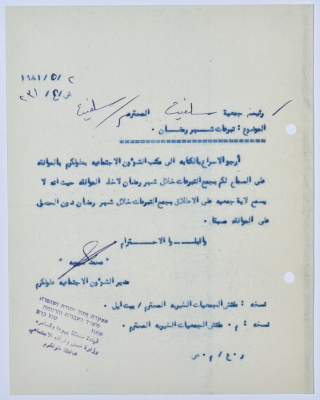 ١٩٨١/٥/٢
رئيس جمعية سلفيت المحترم / سلفيت
الموضوع : تبرعات شهر رمضان .
أرجو الاسراع بالكتابه الى مكتب الشؤون الاجتماعيه بطولكرم بالموافقه
على السماح لكم بجمع التبرعات خلال شهر رمضان لاخذ الموافقه حيث انه لا
يسمح لاية جمعيه على الاطلاق بجمع التبرعات خلال شهر رمضان دون الحصول
على الموافقه مسبقا .
واقبلوا الاحترام
مدير الشؤون الاجتماعيه طولكرم
نسخه : الجمعيات الخيريه المحترم / بيت ايل .
نسخه : م . الجمعيات الخيريه المحترم .